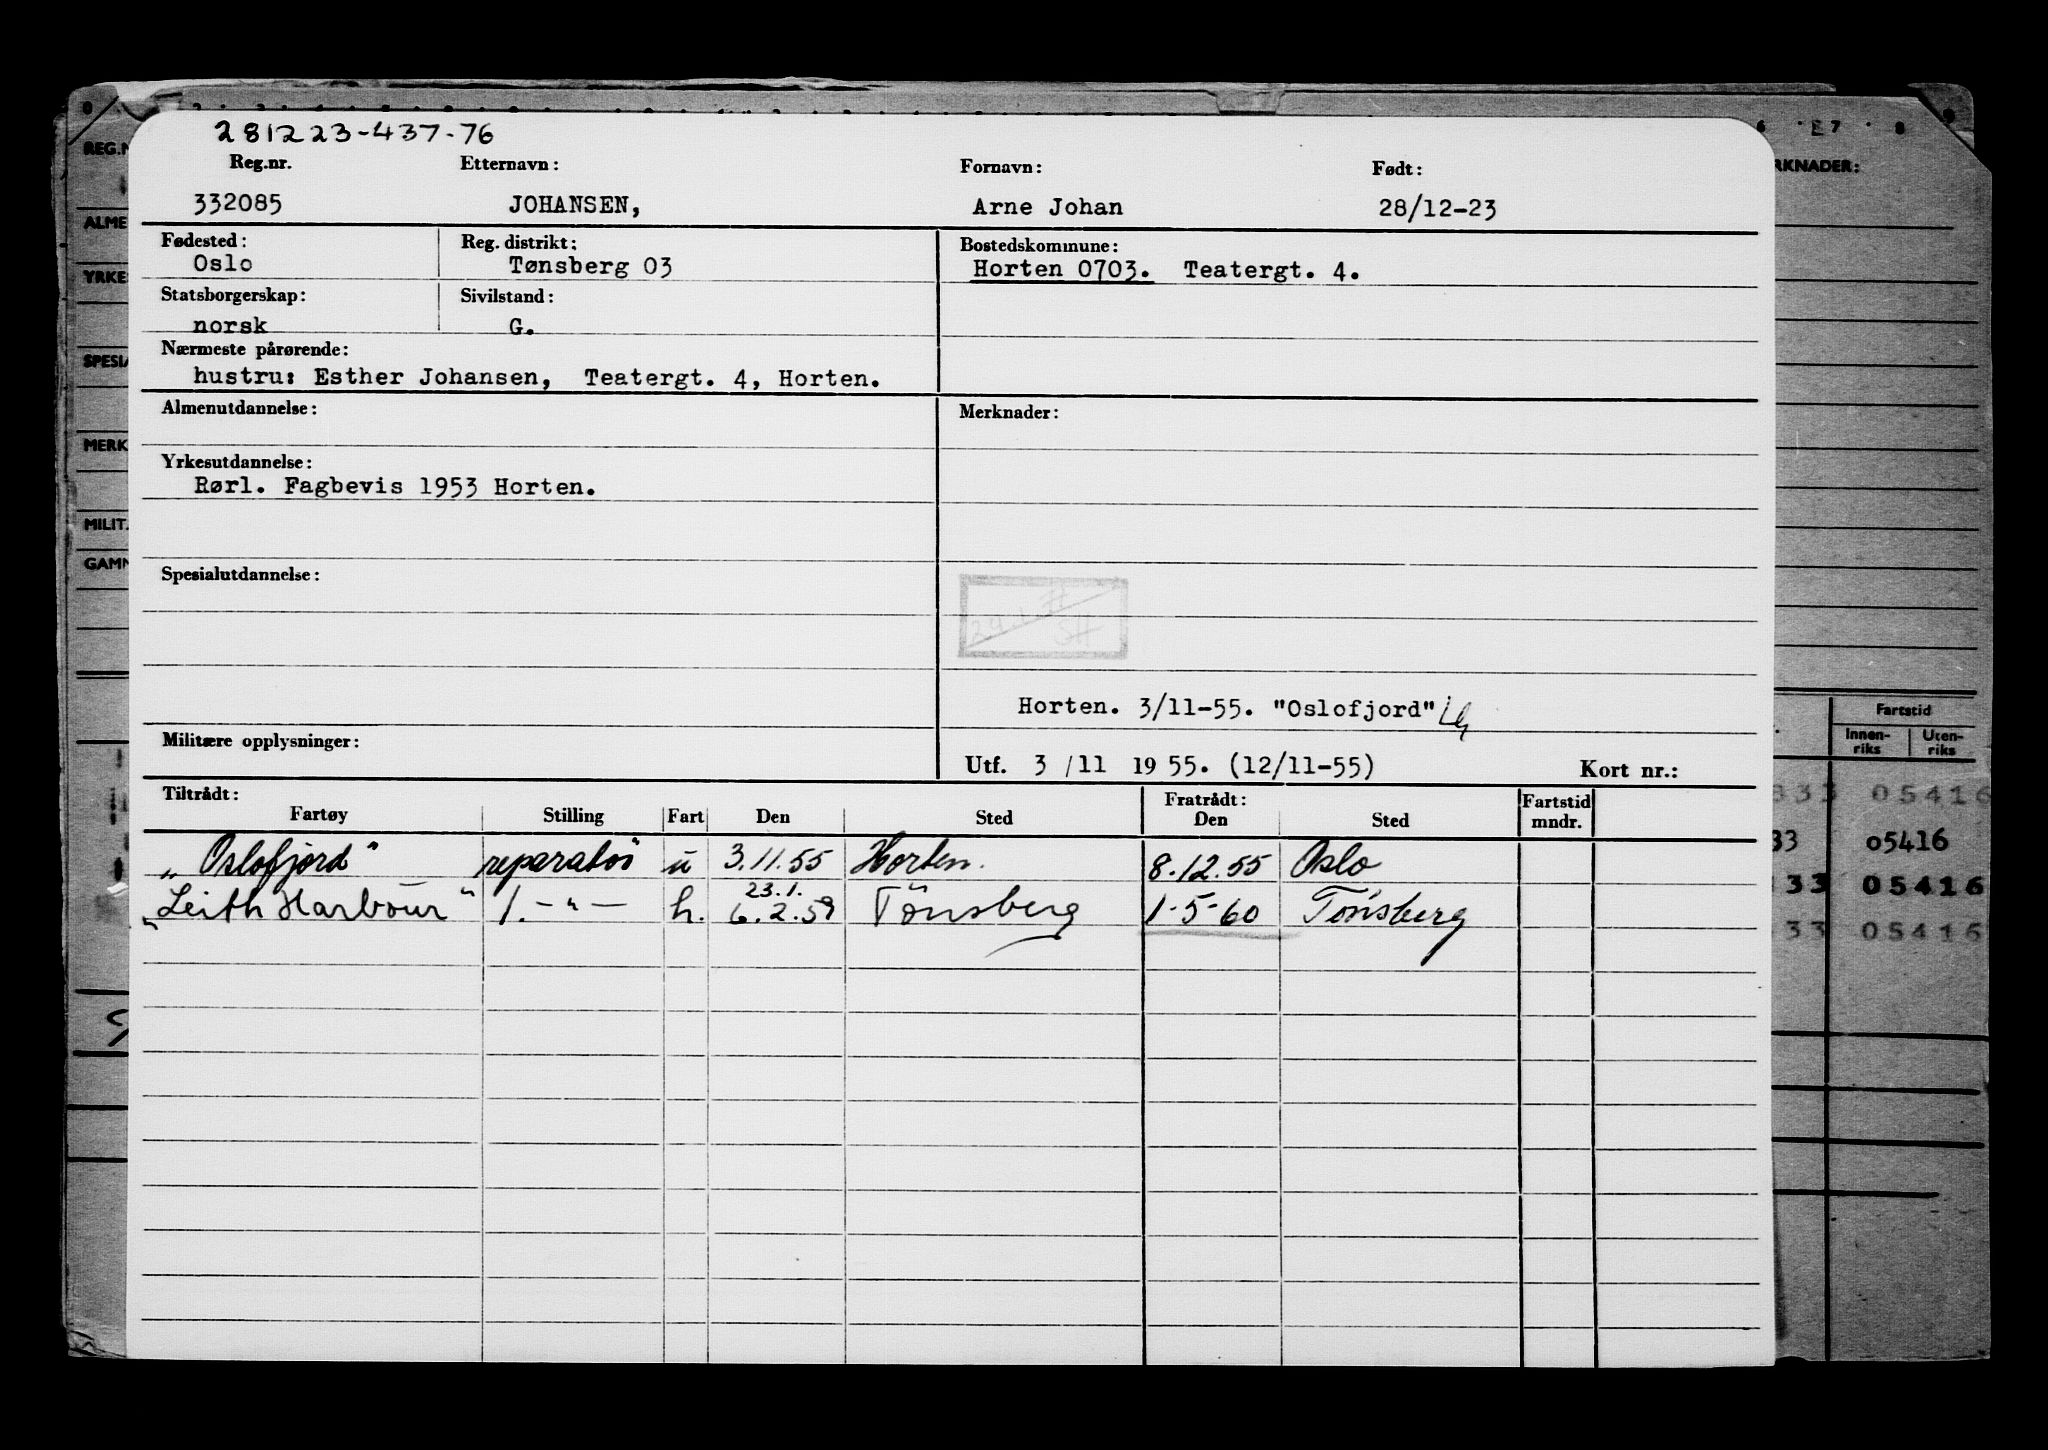 281223-437-76
Reg.nr. Etternavn: Fornavn: Født:
332085 JOHANSEN, Arne Johan 28/12-23
Fødested: Reg. distrikt: Bostedskommune:
Oslo Tønsberg 03 Horten 0703. Teatergt. 4.
Statsborgerskap: Sivilstand:
norsk G.
Nærmeste pårørende:
hustru: Esther Johansen, Teatergt. 4, Horten.
Almenutdannelse: Merknader:
Yrkesutdannelse:
Rørl. Fagbevis 1953 Horten.
Spesialutdannelse:
Horten. 3/11-55. "Oslofjord"
Militære opplysninger:
Utf. 3 /11 19 55. (12/11-55) Kort nr.:
Tiltrådt: Fratrådt: Fartstid
Fartøy Stilling Fart Den Sted Den Sted mndr.
"Oslofjord" reparatør u 3.11.55 Horten. 8.12.55 Oslo
23.1.
"Leith Harbour" 1. -"- h. 6.2.59 Tönsberg 1-5-60 Tönsberg
REG.N
ALME
YRKE
SPESIA
MERK
MILIT.
GAMN
RKNADER:
Fartstid
Innen-
riks
Uten-
riks
333 05416
33 05416
33 05416
33 05416